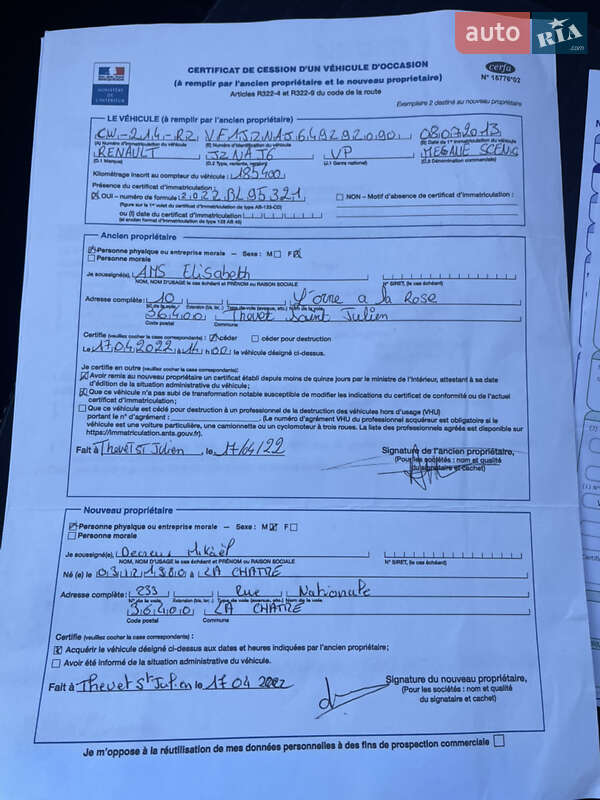 auto RIA .com
MINISTÈRE DE L'INTÉRIEUR
CERTIFICAT DE CESSION D'UN VÉHICULE D'OCCASION
(à remplir par l'ancien propriétaire et le nouveau propriétaire)
Articles R322-4 et R322-9 du code de la route
cerfa
N° 15776*02
Exemplaire 2 destiné au nouveau propriétaire
LE VÉHICULE (à remplir par l'ancien propriétaire)
CW-214-RZ VF1JZNAJ649292090 08072013
(A) Numéro d'immatriculation du véhicule (E) Numéro d'identification du véhicule (B) Date de 1re immatriculation du véhicule
RENAULT JZNAJ6 VP MEGANE SCENIC
(D.1) Marque (D.2) Type, variante, version (J.1) Genre national (D.3) Dénomination commerciale
Kilométrage inscrit au compteur du véhicule : 185400
Présence du certificat d'immatriculation :
OUI – numéro de formule : 2022BL95321 NON – Motif d'absence de certificat d'immatriculation :
(figure sur le 1er volet du certificat d'immatriculation de type AB-123-CD)
ou (I) date du certificat d'immatriculation
(si ancien format d'immatriculation de type 123 AB 45)
Ancien propriétaire
Personne physique ou entreprise morale – Sexe : M F
Personne morale
Je soussigné(e), AMS Elisabeth
NOM, NOM D'USAGE le cas échéant et PRÉNOM ou RAISON SOCIALE N° SIRET, (le cas échéant)
Adresse complète : 10 L'orme a la Rose
N° de la voie Extension (bis, ter, .) Type de voie (avenue, etc.) Nom de la voie
36400 Thevet Saint Julien
Code postal Commune
Certifie (veuillez cocher la case correspondante) : céder céder pour destruction
Le 17042022 à 14 h 00 le véhicule désigné ci-dessus.
Je certifie en outre (veuillez cocher la case correspondante) :
Avoir remis au nouveau propriétaire un certificat établi depuis moins de quinze jours par le ministre de l'Intérieur, attestant à sa date
d'édition de la situation administrative du véhicule ;
Que ce véhicule n'a pas subi de transformation notable susceptible de modifier les indications du certificat de conformité ou de l'actuel
certificat d'immatriculation ;
Que ce véhicule est cédé pour destruction à un professionnel de la destruction des véhicules hors d'usage (VHU)
portant le n° d'agrément : . (Le numéro d'agrément VHU du professionnel acquéreur est obligatoire si le
véhicule est une voiture particulière, une camionnette ou un cyclomoteur à trois roues. La liste des professionnels agréés est disponible sur
https://immatriculation.ants.gouv.fr).
Fait à Thevet St Julien, le 17/04/22
Signature de l'ancien propriétaire,
(Pour les sociétés : nom et qualité
du signataire et cachet)
Nouveau propriétaire
Personne physique ou entreprise morale – Sexe : M F
Personne morale
Je soussigné(e) Mikaël
NOM, NOM D'USAGE le cas échéant et PRÉNOM ou RAISON SOCIALE N° SIRET, (le cas échéant)
Né (e) le 03121980 à LA CHATRE
Adresse complète : 233 Rue Nationale
N° de la voie Extension (bis, ter, .) Type de voie (avenue, etc.) Nom de la voie
36400 LA CHATRE
Code postal Commune
Certifie (veuillez cocher la case correspondante) :
Acquérir le véhicule désigné ci-dessus aux dates et heures indiquées par l'ancien propriétaire ;
Avoir été informé de la situation administrative du véhicule.
Fait à Thevet St Julien le 17 04 2022
Signature du nouveau propriétaire,
(Pour les sociétés : nom et qualité
du signataire et cachet)
Je m'oppose à la réutilisation de mes données personnelles à des fins de prospection commerciale